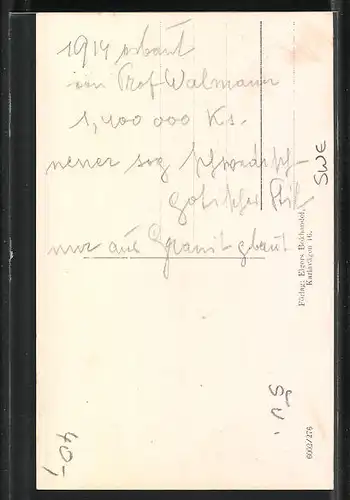 1914 erbaut
von Prof Walmann
1,400 000 Ks.
neuer sog schwedisch
gotischer Stil
nur aus Granit gebaut
SWE
Förlag: Elgers Bokhandel,
Karlavägen 16.
6002/276
40,-